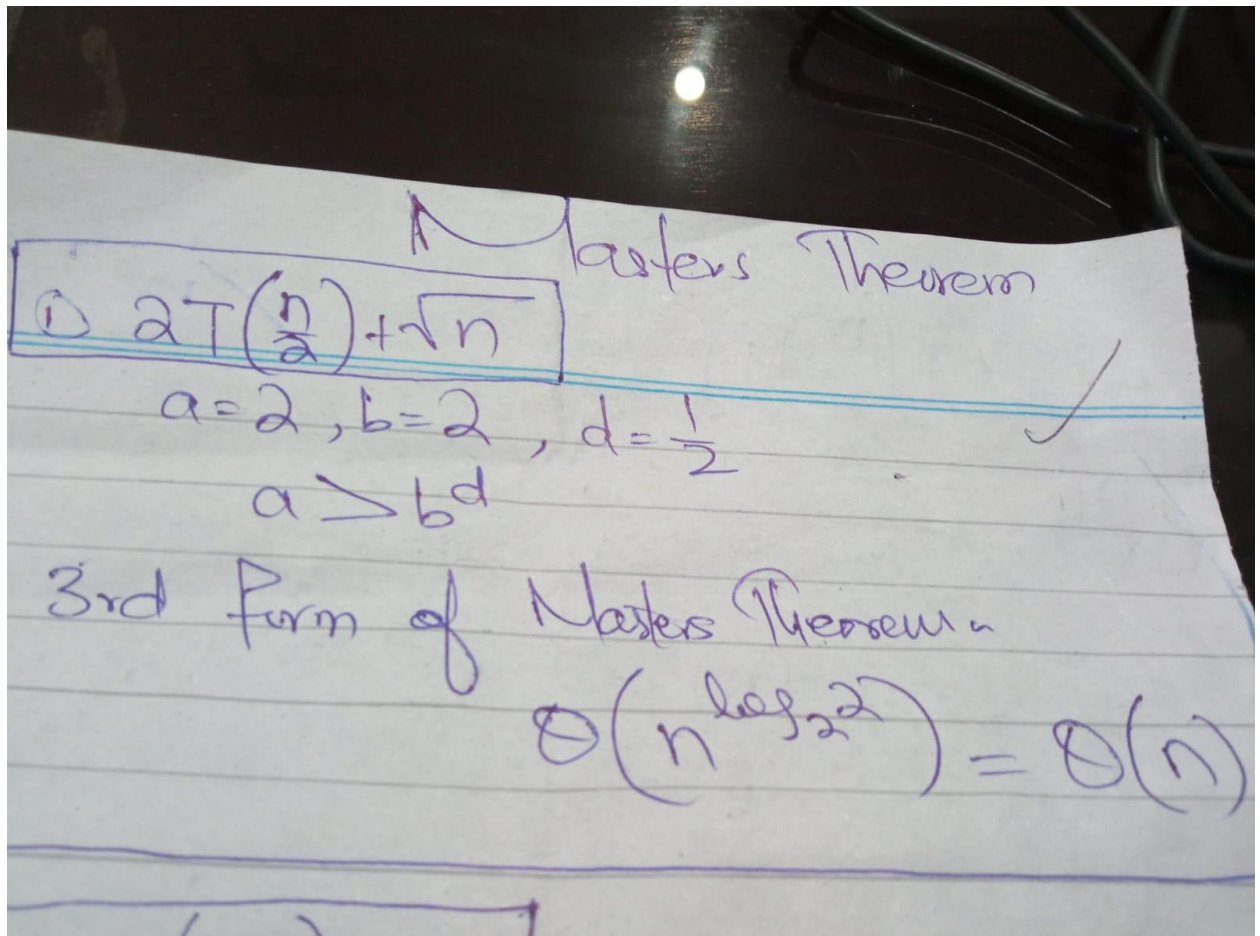 Masters Theorem
① 2T(n/2) + √n
a = 2, b = 2, d = 1/2
a > b^d
3rd Form of Masters Theorem.
Θ(n^(log₂2)) = Θ(n)